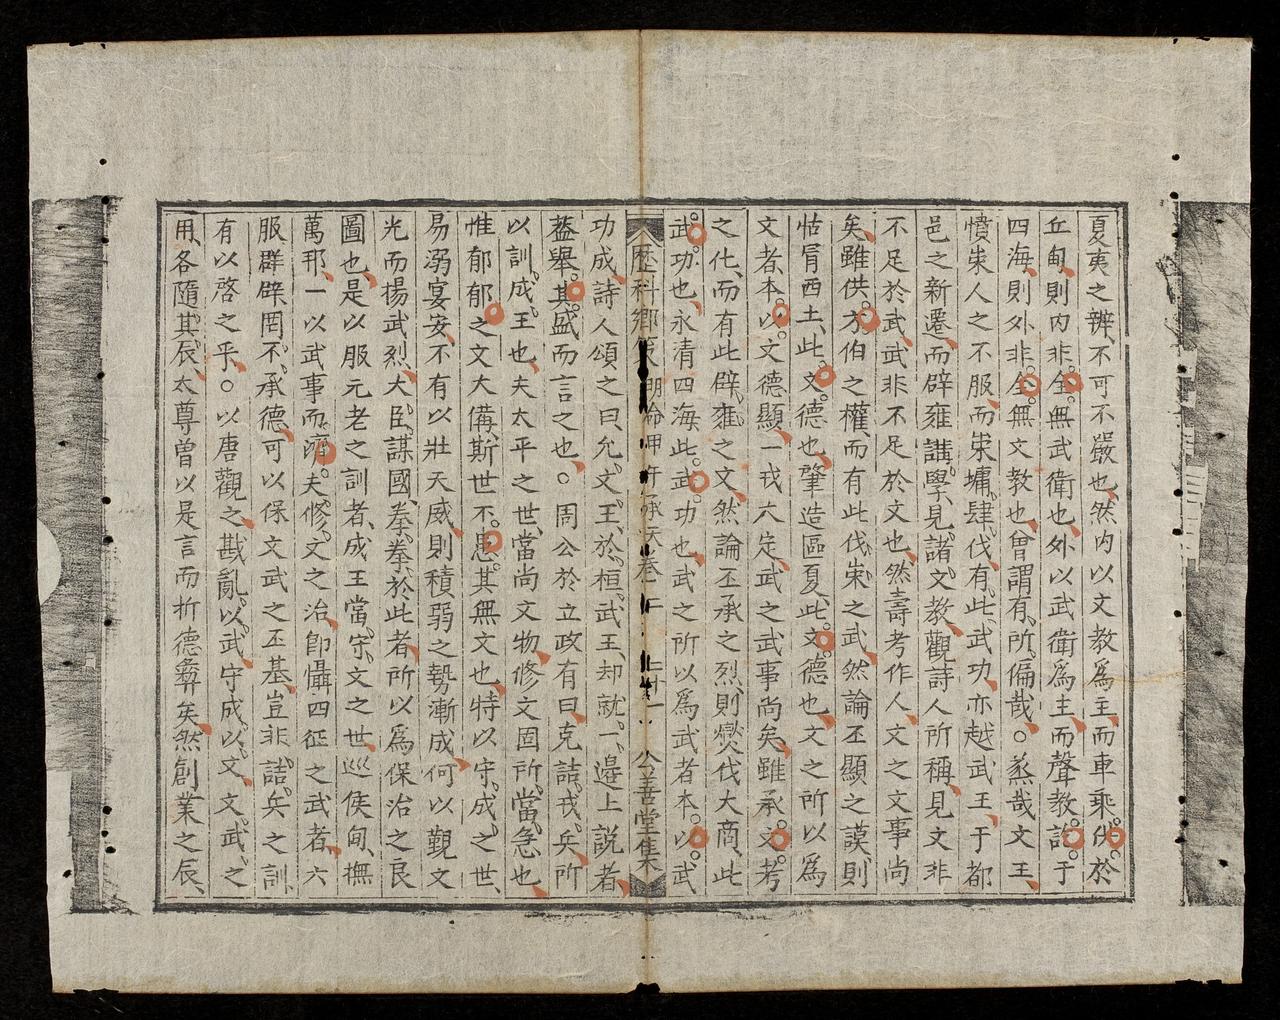 夏夷之辨不可不嚴也然内以文教爲主而車乘供於
丘甸則内非全無武衛也外以武衛爲主而聲教訖于
四海則外非全無文教也曾謂有所偏哉○烝哉文王
憤崇人之不服而崇墉肆伐有此武功亦越武王于都
邑之新遷而辟雍講學見諸文教觀詩人所稱見文非
不足於武武非不足於文也然壽考作人文之文事尚
矣雖供方伯之權而有此伐崇之武然論丕顯之謨則
怙冒西土此文德也肇造區夏此文德也文之所以爲
文者本以文德顯一戎大定武之武事尚矣雖承文考
之化而有此辟雍之文然論丕承之烈則燮伐大商此
武功也永清四海此武功也武之所以爲武者本以武
歷科鄉策 明命甲午承天卷十二 公善堂集
功成詩人頌之曰允文王於桓武王却就一邊上説者
蓋舉其盛而言之也○周公於立政有曰克詰戎兵所
以訓成王也夫太平之世當尚文物修文固所當急也
惟郁郁之文大備斯世不患其無文也特以守成之世
易溺宴安不有以壯天威則積弱之勢漸成何以覲文
光而揚武烈大臣謀國拳拳於此者所以爲保治之良
圖也是以服元老之訓者成王當守文之世巡侯甸撫
萬邦一以武事而濟夫修文之治即懾四征之武者六
服群辟罔不承德可以保文武之丕基豈非詰兵之訓
有以啓之乎○以唐觀之戡亂以武守成以文文武之
用各隨其辰太尊曾以是言而折德彝矣然創業之辰